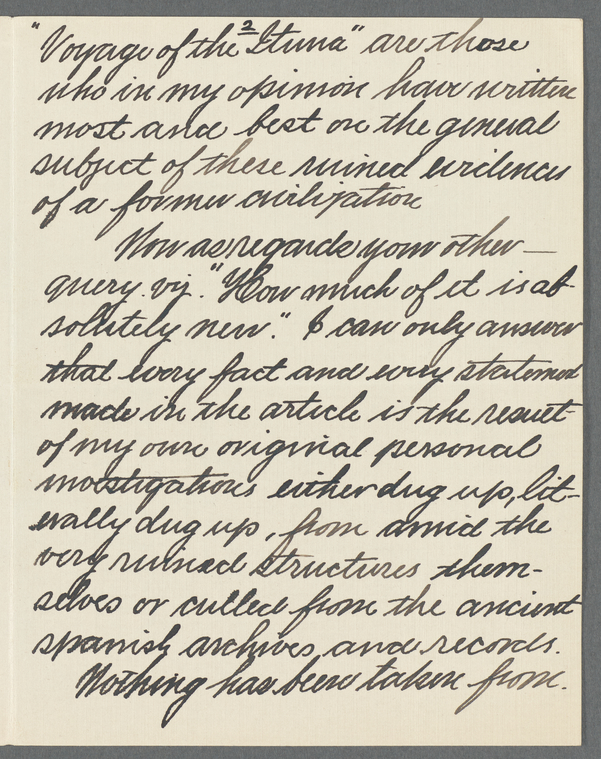 "Voyage of the 2 Ituna" are those
who in my opinion have written
most and best on the general
subject of these ruined evidences
of a former civilization
Now as regards your other —
query. viz. "How much of it is ab-
solutely new." I can only answer
that every fact and every statement
made in the article is the result
of my own original personal
investigations either dug up, lit-
erally dug up, from amid the
very ruined structures them-
selves or culled from the ancient
spanish archives and records.
Nothing has been taken from.